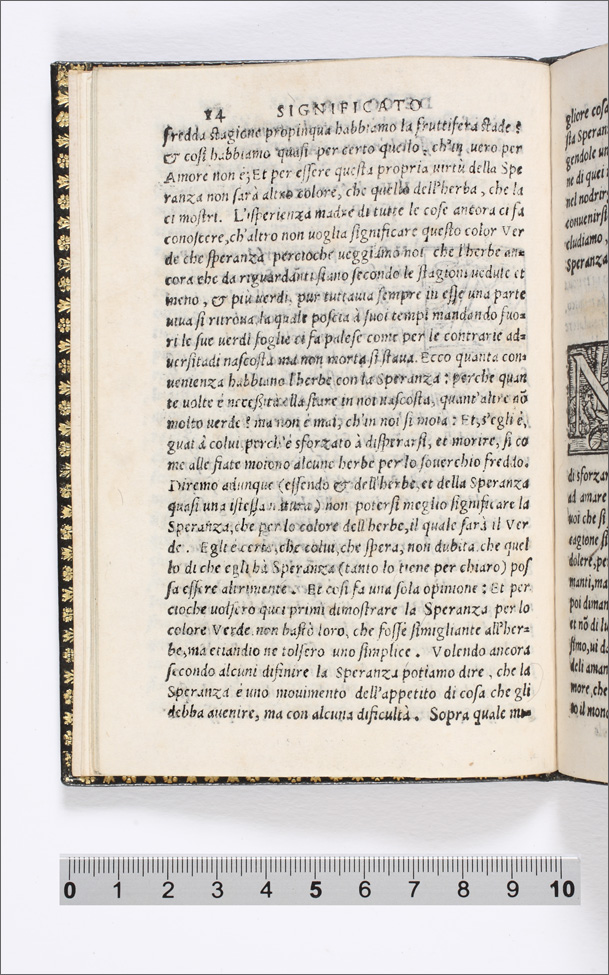 14 SIGNIFICATO
fredda stagione propinqua habbiamo la fruttifera stade:
& cosi habbiamo quasi per certo quello, ch'in vero per
Amore non è; Et per essere questa propria virtù della Spe
ranza non sarà altro colore, che quello dell'herba, che la
ci mostri. L'isperienza madre di tutte le cose ancora ci fa
conoscere, ch'altro non voglia significare questo color Ver
de che speranza percioche veggiamo noi che l'herbe an-
cora che da riguardanti siano secondo le stagioni vedute et
meno, & più verdi, pur tuttavia sempre in esse una parte
viva si ritrova, la quale poscia à suoi tempi mandando fuo-
ri le sue verdi foglie ci fa palese come per le contrarie ad-
versitadi nascosta ma non morta si stava. Ecco quanta con
venienza habbiano l'herbe con la Speranza: perche quan
te volte è necessità ella stare in noi nascosta, quant'altre nō
molto verde? ma non è mai, ch'in noi si moia: Et, s'egli è,
guai à colui, perch'è sforzato à disperarsi, et morire, si co
me alle fiate moiono alcune herbe per lo soverchio freddo.
Diremo adunque (essendo & dell'herbe, et della Speranza
quasi una istessa natura) non potersi meglio significare la
Speranza, che per lo colore dell'herbe, il quale sarà il Ver
de. Egli è certo, che colui, che spera, non dubita che quel
lo di che egli hà Speranza (tanto lo tiene per chiaro) pos
sa essere altrimente. Et cosi fa una sola opinione: Et per
cioche volsero quei primi dimostrare la Speranza per lo
colore Verde non bastò loro, che fosse simigliante all'her-
be, ma etiandio ne tolsero uno simplice. Volendo ancora
secondo alcuni difinire la Speranza potiamo dire, che la
Speranza è uno movimento dell'appetito di cosa che gli
debba avenire, ma con alcuna dificultà. Sopra quale
gliere cosa
sta Speran
gendole un
ne di quei
convenirsi
cludiamo,
Speranza
N
di sforzar
ad amare
voi che si
cagione si
dolere, pe
manti, ma
poi diman
et nō di lu
simo, ui da
deli aman
more, che
to il mon
0 1 2 3 4 5 6 7 8 9 10